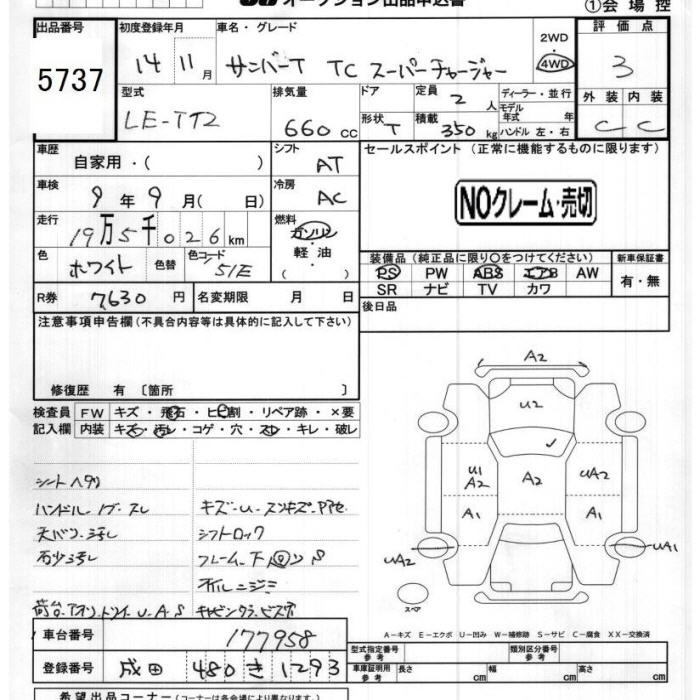 オークション出品申込書
①会場控
出品番号 5737
初度登録年月 14 11月
車名・グレード サンバーT TC スーパーチャージャー
2WD 4WD
評価点 3
型式 LE-TT2
排気量 660cc
ドア
形状 T
定員 2人
積載 350kg
ディーラー・並行
モデル年式 年
ハンドル 左・右
外装 内装
C C
車歴 自家用・( )
シフト AT
セールスポイント(正常に機能するものに限ります)
車検 9年9月( 日)
冷房 AC
NOクレーム・売切
走行 19万5千026km
燃料 ガソリン・軽油・( )
色 ホワイト 色替 色コード 51E
装備品(純正品に限り○をつけてください)
新車保証書
PS PW ABS エアB AW
SR ナビ TV カワ
有・無
R券 7,630円 名変期限 月 日
後日品
注意事項申告欄(不具合内容等は具体的に記入して下さい)
修復歴 有 〔箇所 〕
検査員記入欄
FW キズ・飛石・ヒビ割・リペア跡・×要
内装 キズ・汚レ・コゲ・穴・スレ・キレ・破レ
シートヘタリ
ハンドル・ノブ・スレ
天バリ・汚れ
シフトロック
A2
U2
U1 A2
A2
UA2
A1
A1
UA2
UA1
スペア
A－キズ E－エクボ U－凹み W－補修跡 S－サビ C－腐食 XX－交換済
車台番号 177958
型式指定番号 参考
類別区分番号 参考
登録番号 成田 480 き 1293
車庫証明用 参考 長さ cm 幅 cm 高さ cm
希望出品コーナー(コーナーは各会場により異なります。)